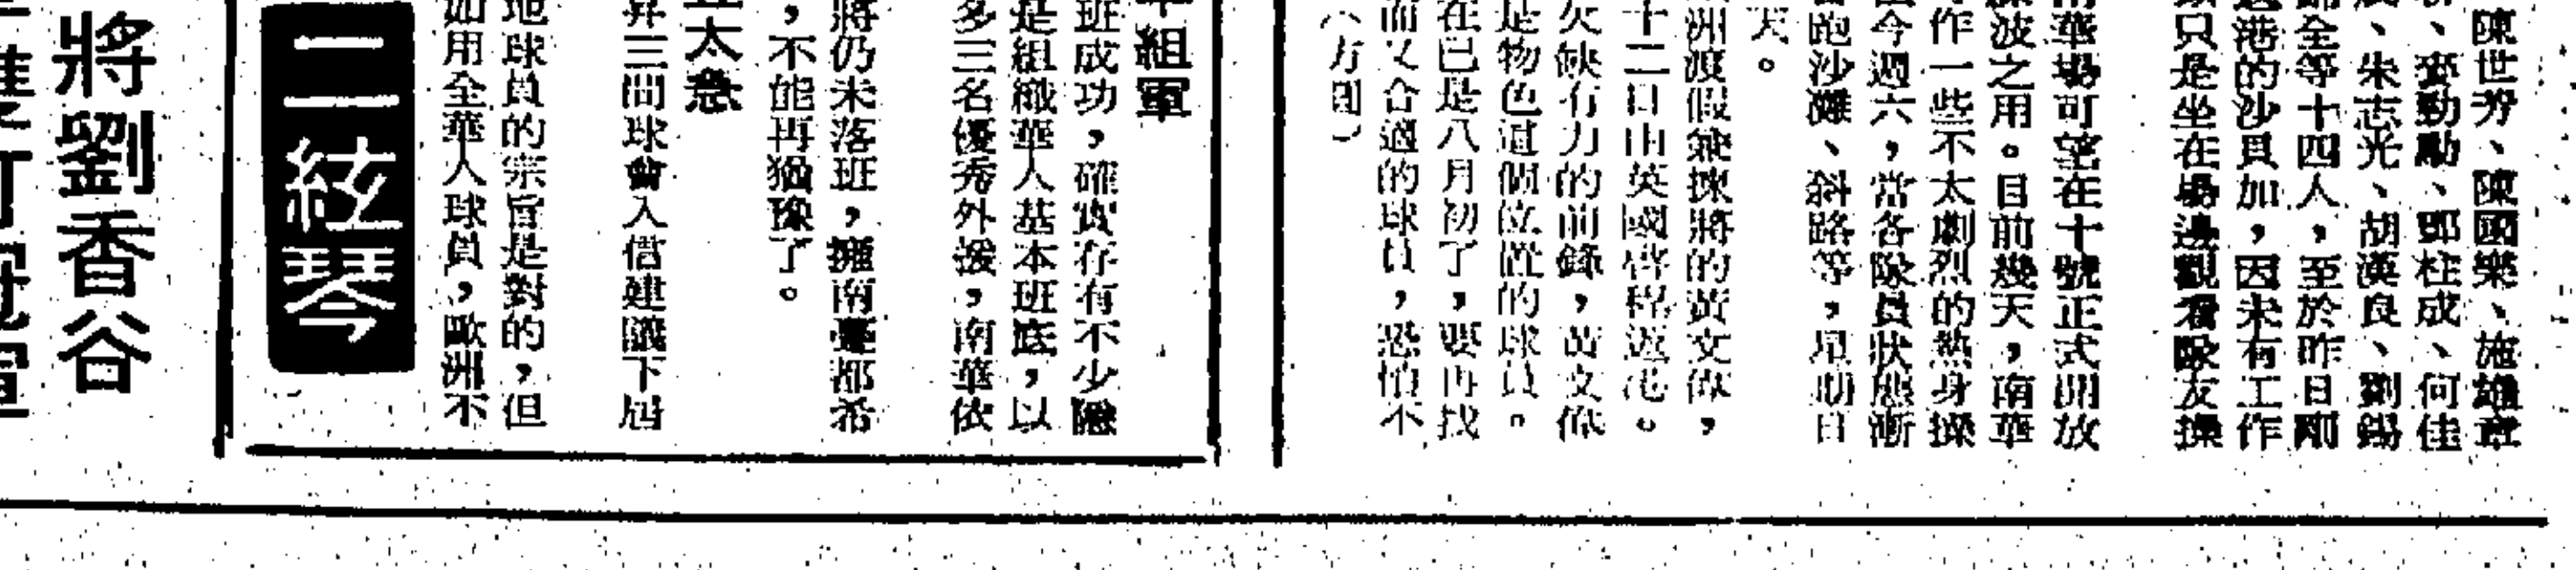 陳世芳、陳國樂、施雄章
、麥勤勵、鄧柱成、何佳
、朱志光、胡漢良、劉錫
全等十四人，至於昨日剛
返港的沙貝加，因未有工作
只是坐在場邊觀看隊友操
南華場可望在十號正式開放
操波之用。目前幾天，南華
作一些不太劇烈的熱身操
今週六，當各隊員狀態漸
跑沙灘、斜路等，星期日
天。
洲渡假兼揀將的黃文偉，
十二日由英國啓程返港。
欠缺有力的前鋒，黃文偉
是物色這個位置的球員。
在已是八月初了，要再找
而又合適的球員，恐怕不
（方圓）
組軍
班成功，確實存有不少隱
是組織華人基本班底，以
多三名優秀外援，南華依
將仍未落班，擁南躉都希
，不能再猶豫了。
太急
昇三間球會入信建議下屆
地球員的宗旨是對的，但
如用全華人球員，歐洲不
二絃琴
將劉香谷